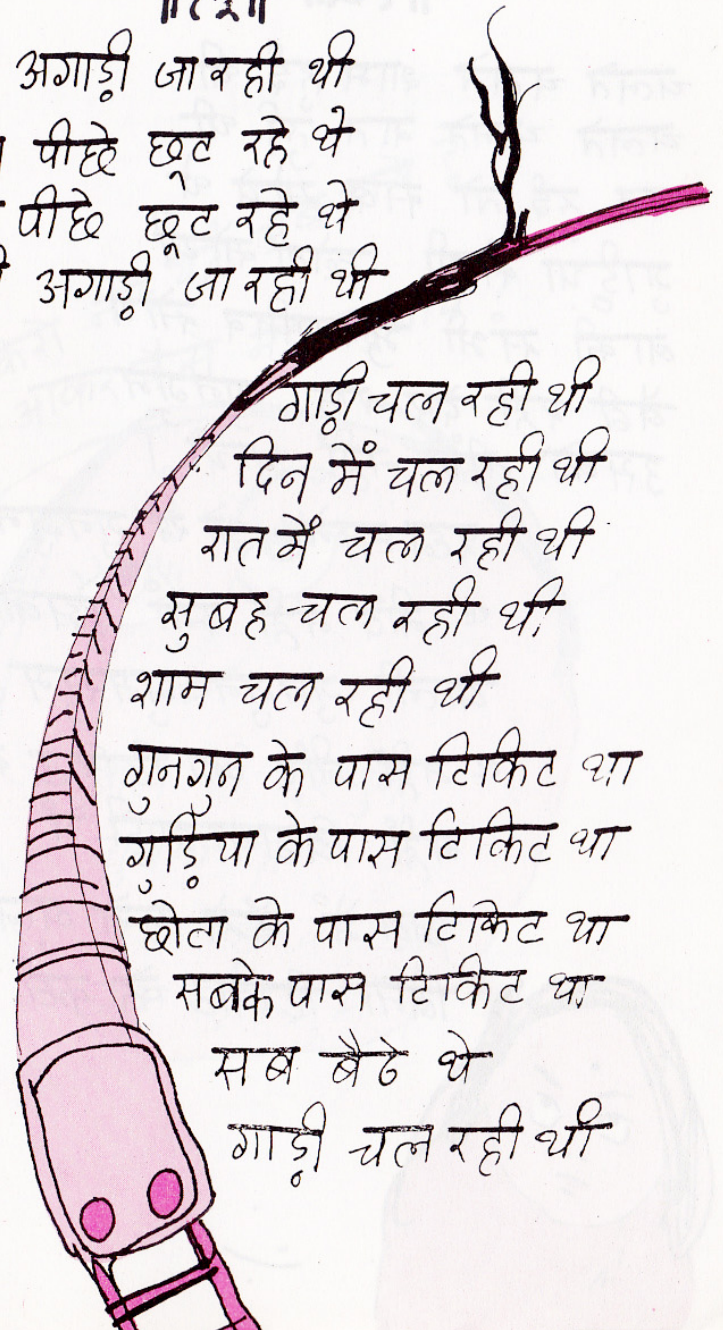 अगाड़ी जा रही थी
पीछे छूट रहे थे
पीछे छूट रहे थे
अगाड़ी जा रही थी
गाड़ी चल रही थी
दिन में चल रही थी
रात में चल रही थी
सुबह चल रही थी
शाम चल रही थी
गुनगुन के पास टिकिट था
गुड़िया के पास टिकिट था
छोटा के पास टिकिट था
सबके पास टिकिट था
सब बैठे थे
गाड़ी चल रही थी